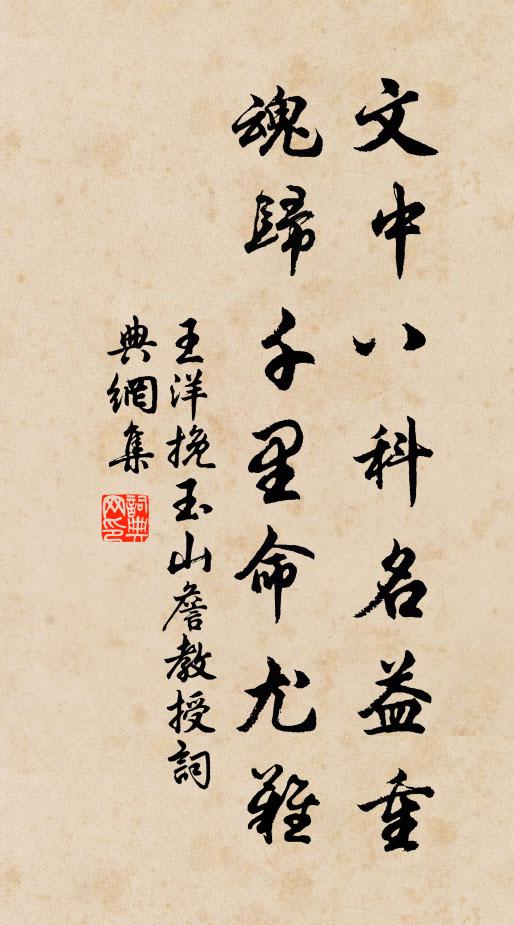 文中八科名益重
魂歸千里命尤難
王洋挽玉山詹教授詞
典網集
詞典网印